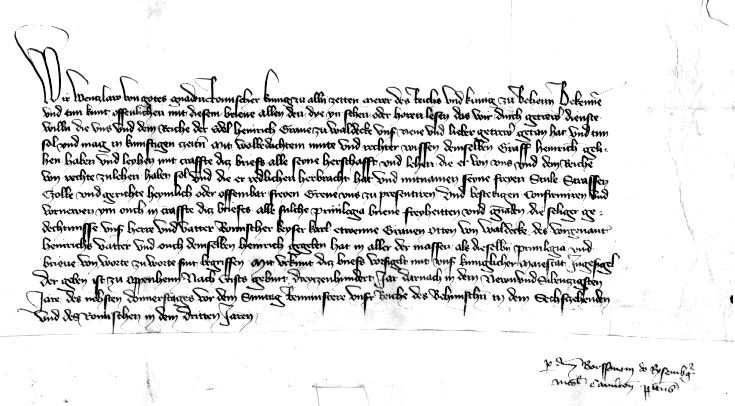 Wir Wenzlaw von gotes gnaden Romischer kunig zu allen zeiten merer des Reichs und kunig zu Beheim Bekennen
und tun kunt offenlichen mit diesem brieve allen den die yn sehen oder horen lesen das wir durch getrewr dienste
willen die uns und dem Reiche der edel Heinrich Grave zu Waldecke unser neve und lieber getrewr getan hat und tun
sol und mag in kunftigen zeiten Mit wolbedachtem mute und rechter wissen demselben Graff Heinrich geli-
hen haben und leyhen mit craffte dicz briefs alle seine herschafft und lehen die er von uns und dem Reiche
von rechte zulehen haben sol und die er redlichen herbracht hat und mitnamen seyne freyen Stule Strassen
Czolle und gerichte heymlich oder offembar freyen Greve uns zu presentiren Und bestetigen Confirmiren und
vornewen ym ouch in craffte dicz brieffes alle sulche privilegia brieve freyheiten und gnaden die seliger ge-
dechtnusse unser herre und vatter Romischer keyser karl etwenne Graven Otten von Waldecke des vorgenant
Heinrichs vatter und ouch demselben Heinrich gegeben hat in aller der massen als dieselben privilegia und
brieve von worte zu worte sint begriffen Mit urkunt dicz briefs vorsigelt mit unser kuniglicher maiestat Ingesigel
Der geben ist zu Oppenheim Nach Crists geburt dreyczenhundert Jar darnach in dem Newnundsibenczigsten
Jare des nehsten donnerstages vor dem Suntag Reminiscere unser Reiche des Behmischen in dem Sechczehenden
und des Romischen in dem dritten Jaren
p dm de Rosemberg